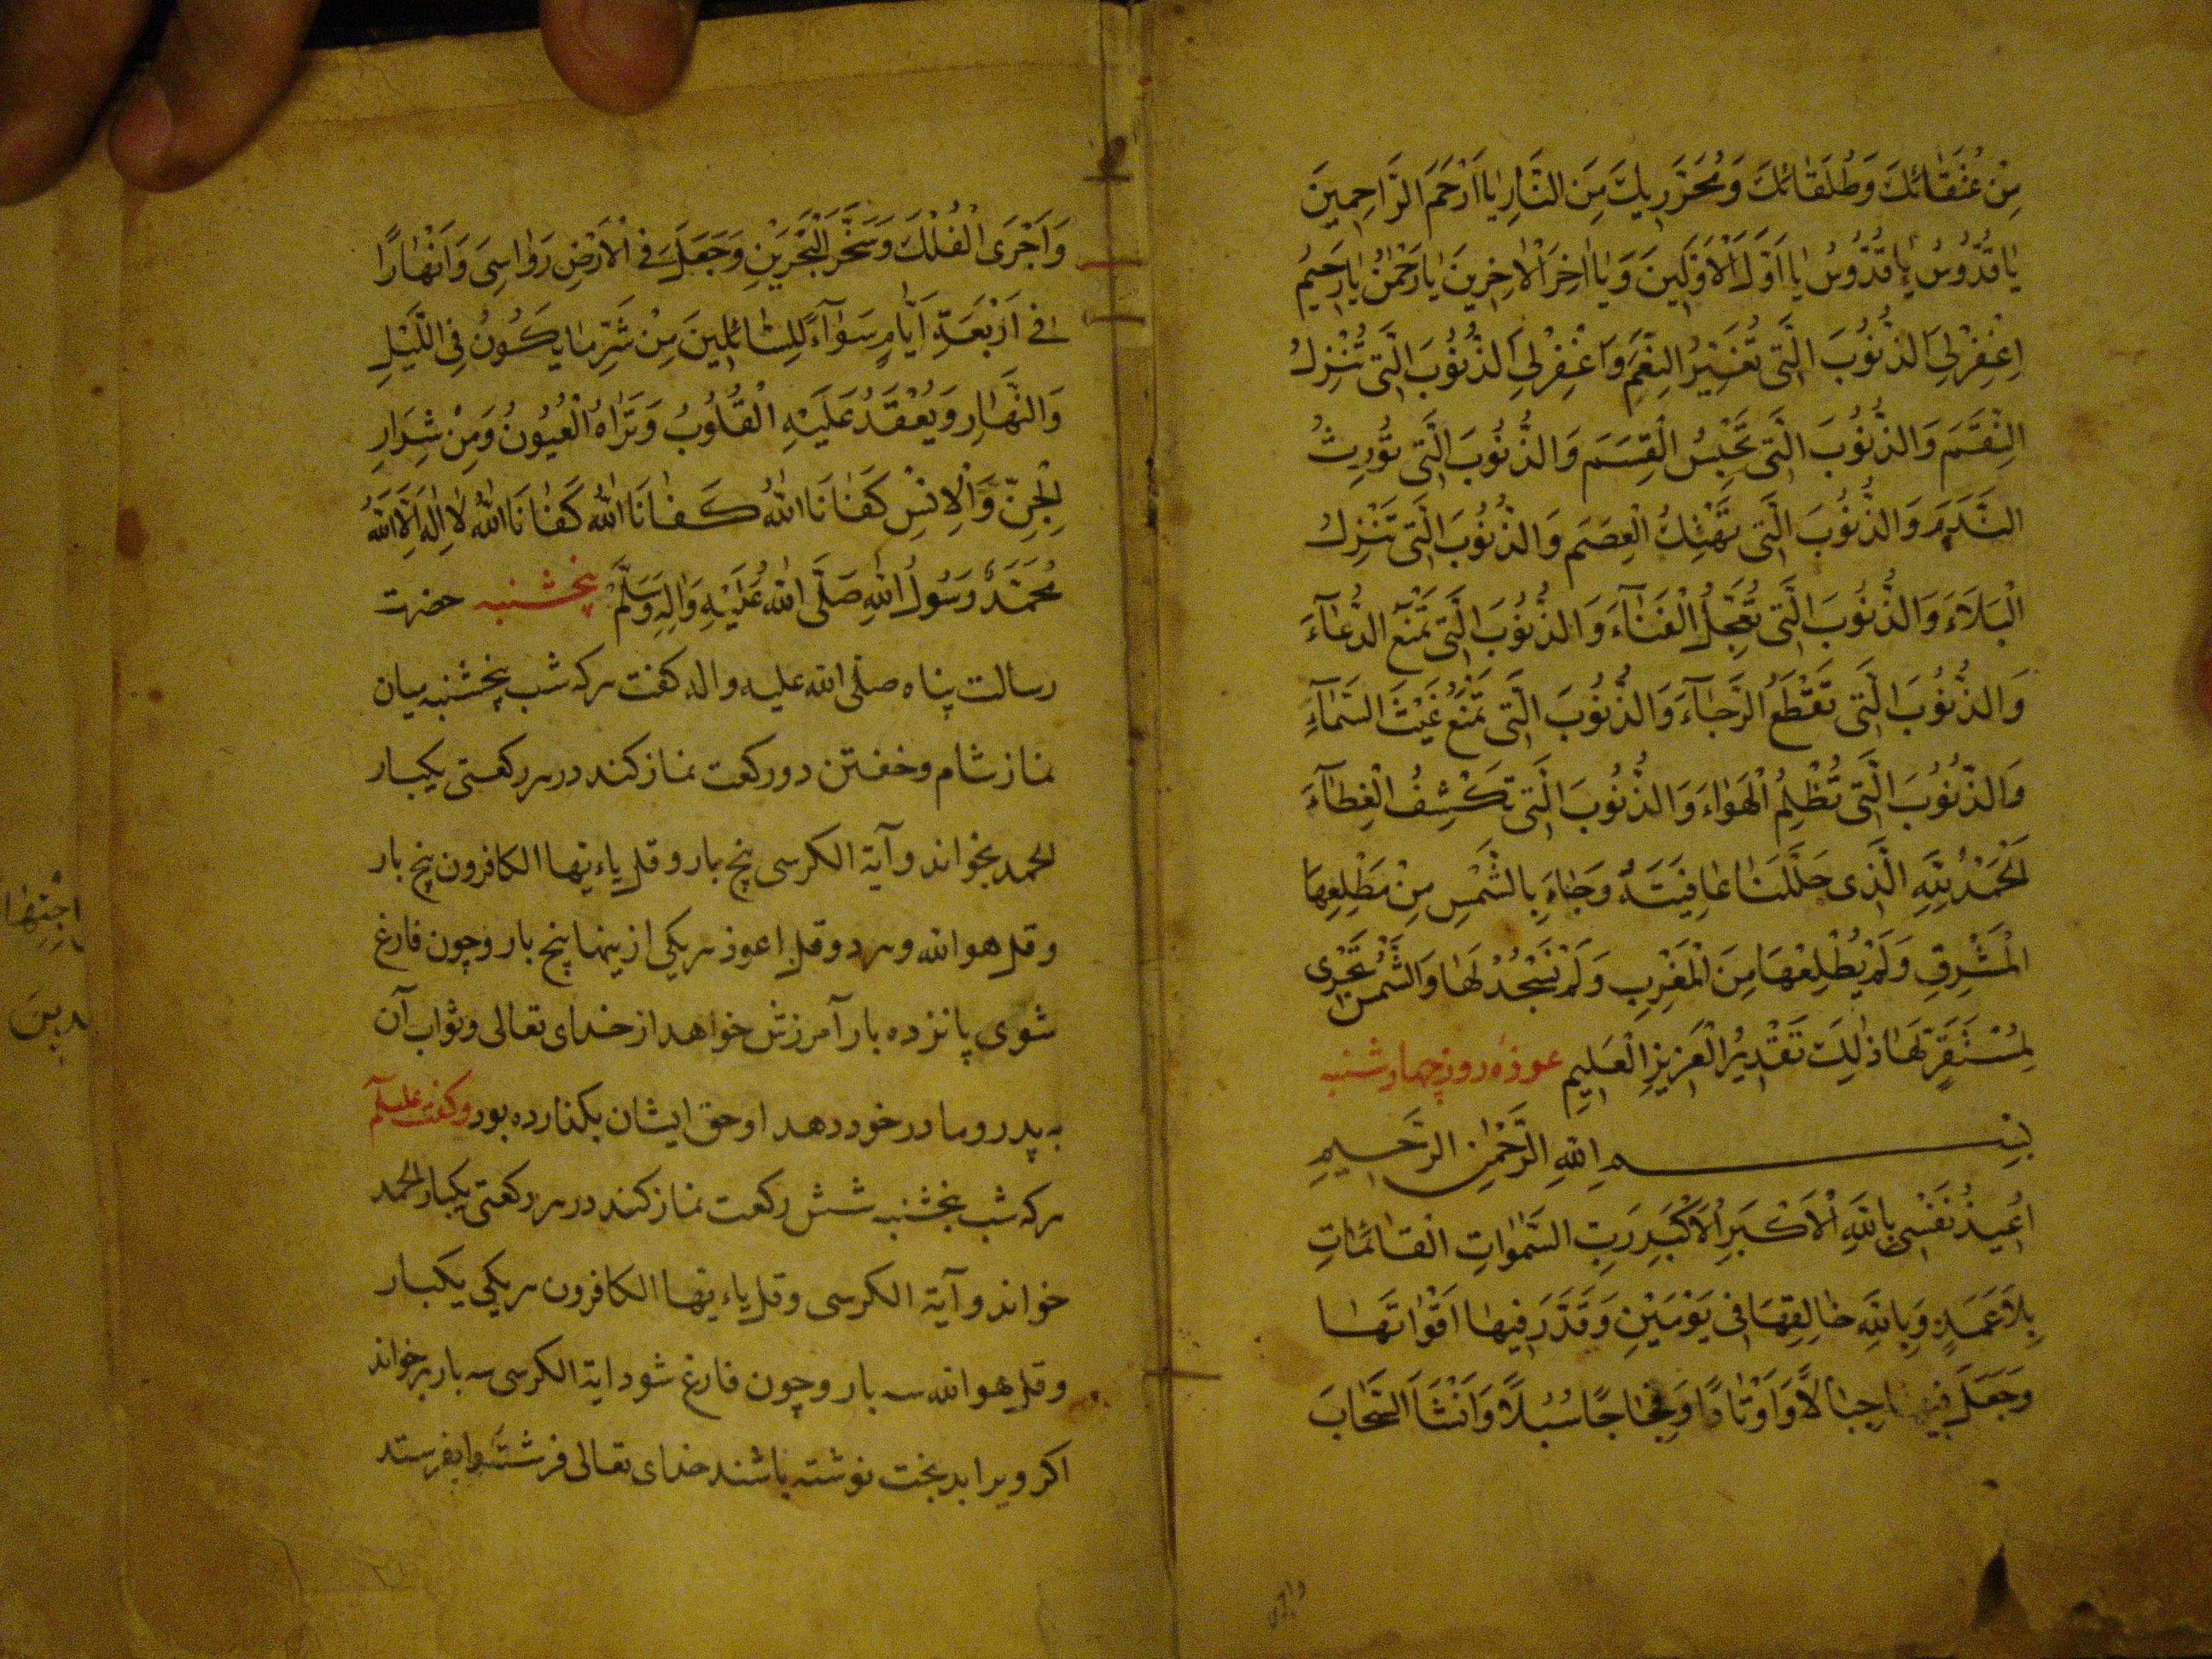 مِنْ عُتَقَائِكَ وَطُلَقَائِكَ وَمُحَرَّرِيكَ مِنَ النَّارِ يَا اَرْحَمَ الرَّاحِمِينَ
يَا قُدُّوسُ يَا قُدُّوسُ يَا اَوَّلَ الْاَوَّلِينَ وَيَا اٰخِرَ الْاٰخِرِينَ يَا رَحْمٰنُ يَا رَحِيمُ
اِغْفِرْ لِيَ الذُّنُوبَ الَّتِي تُغَيِّرُ النِّعَمَ وَاغْفِرْ لِيَ الذُّنُوبَ الَّتِي تُنْزِلُ
النِّقَمَ وَالذُّنُوبَ الَّتِي تَحْبِسُ الْقِسَمَ وَالذُّنُوبَ الَّتِي تُورِثُ
النَّدَمَ وَالذُّنُوبَ الَّتِي تَهْتِكُ الْعِصَمَ وَالذُّنُوبَ الَّتِي تُنْزِلُ
الْبَلَاءَ وَالذُّنُوبَ الَّتِي تُعَجِّلُ الْفَنَآءَ وَالذُّنُوبَ الَّتِي تَمْنَعُ الدُّعَآءَ
وَالذُّنُوبَ الَّتِي تَقْطَعُ الرَّجَآءَ وَالذُّنُوبَ الَّتِي تَمْنَعُ غَيْثَ السَّمَآءِ
وَالذُّنُوبَ الَّتِي تُظْلِمُ الْهَوَاءَ وَالذُّنُوبَ الَّتِي تَكْشِفُ الْغِطَآءَ
اَلْحَمْدُ لِلّٰهِ الَّذِي جَلَّلَنَا عَافِيَتَهُ وَجَاءَ بِالشَّمْسِ مِنْ مَطْلِعِهَا
الْمَشْرِقِ وَلَمْ يُطْلِعْهَا مِنَ الْمَغْرِبِ وَلَمْ نَسْجُدْ لَهَا وَالشَّمْسُ تَجْرِي
لِمُسْتَقَرٍّ لَهَا ذٰلِكَ تَقْدِيرُ الْعَزِيزِ الْعَلِيمِ عوذهٔ روز چهارشنبه
بِسْمِ اللّٰهِ الرَّحْمٰنِ الرَّحِيمِ
اُعِيذُ نَفْسِي بِاللّٰهِ الْاَكْبَرِ الْاَكْبَرِ رَبِّ السَّمٰوَاتِ الْقَائِمَاتِ
بِلَا عَمَدٍ وَبِاللّٰهِ خَالِقِهَا فِي يَوْمَيْنِ وَقَدَّرَ فِيهَا اَقْوَاتَهَا
وَجَعَلَ فِيهَا جِبَالًا وَاَوْتَادًا وَفِجَاجًا سُبُلًا وَاَنْشَاَ السَّحَابَ
وَاَجْرَى الْفُلْكَ وَسَخَّرَ الْبَحْرَيْنِ وَجَعَلَ فِي الْاَرْضِ رَوَاسِيَ وَاَنْهَارًا
فِي اَرْبَعَةِ اَيَّامٍ سَوَآءً لِلسَّائِلِينَ مِنْ شَرِّ مَا يَكُونُ فِي اللَّيْلِ
وَالنَّهَارِ وَيُعْقَدُ عَلَيْهِ الْقُلُوبُ وَتَرَاهُ الْعُيُونُ وَمِنْ شِرَارِ
الْجِنِّ وَالْاِنْسِ كَفَانَا اللّٰهُ كَفَانَا اللّٰهُ كَفَانَا اللّٰهُ لَا اِلٰهَ اِلَّا اللّٰهُ
مُحَمَّدٌ رَسُولُ اللّٰهِ صَلَّى اللّٰهُ عَلَيْهِ وَاٰلِهِ وَسَلَّمَ پنجشنبه حضرت
رسالت پناه صلی الله علیه واله کفت هرکه شب پنجشنبه میان
نماز شام وخفتن دو رکعت نماز کند در هر رکعتی یکبار
الحمد بخواند وآیة الکرسی پنج بار وقل یاءیها الکافرون پنج بار
وقل هو الله وهر دو قل اعوذ هر یکی ازینها پنج بار وچون فارغ
شوی پانزده بار آمرزش خواهد از خدای تعالی وثواب آن
به پدر ومادر خود دهد او حق ایشان بکذارده بود وکفت علیه السلم
هرکه شب پنجشنبه شش رکعت نماز کند در هر رکعتی یکبار الحمد
خواند وآیة الکرسی وقل یاءیها الکافرون هر یکی یکبار
وقل هو الله سه بار وچون فارغ شود ایة الکرسی سه بار برخواند
اکر ویرا بدبخت نوشته باشند خدای تعالی فرشتهٔ را بفرستد